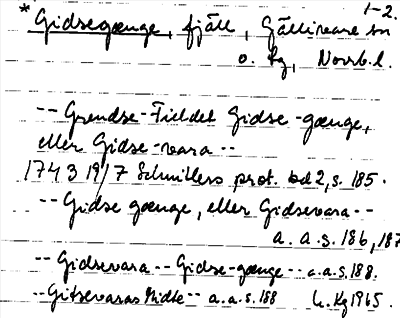 1-2.
* Gidsegænge, fjäll, Gällivare sn
o. kg, Norrb.l.
-- Grendse-Fieldet Gidse-gænge,
eller Gidse-vara --
1743 19/7 Schnitlers prot. bd 2, s. 185.
-- Gidse gænge, eller Gidsevara --
a. a. s. 186, 187
-- Gidsevara -- Gidse-gænge -- a.a.s. 188.
-- Gitsevaras Midte -- a.a.s. 188 Kg 1965.